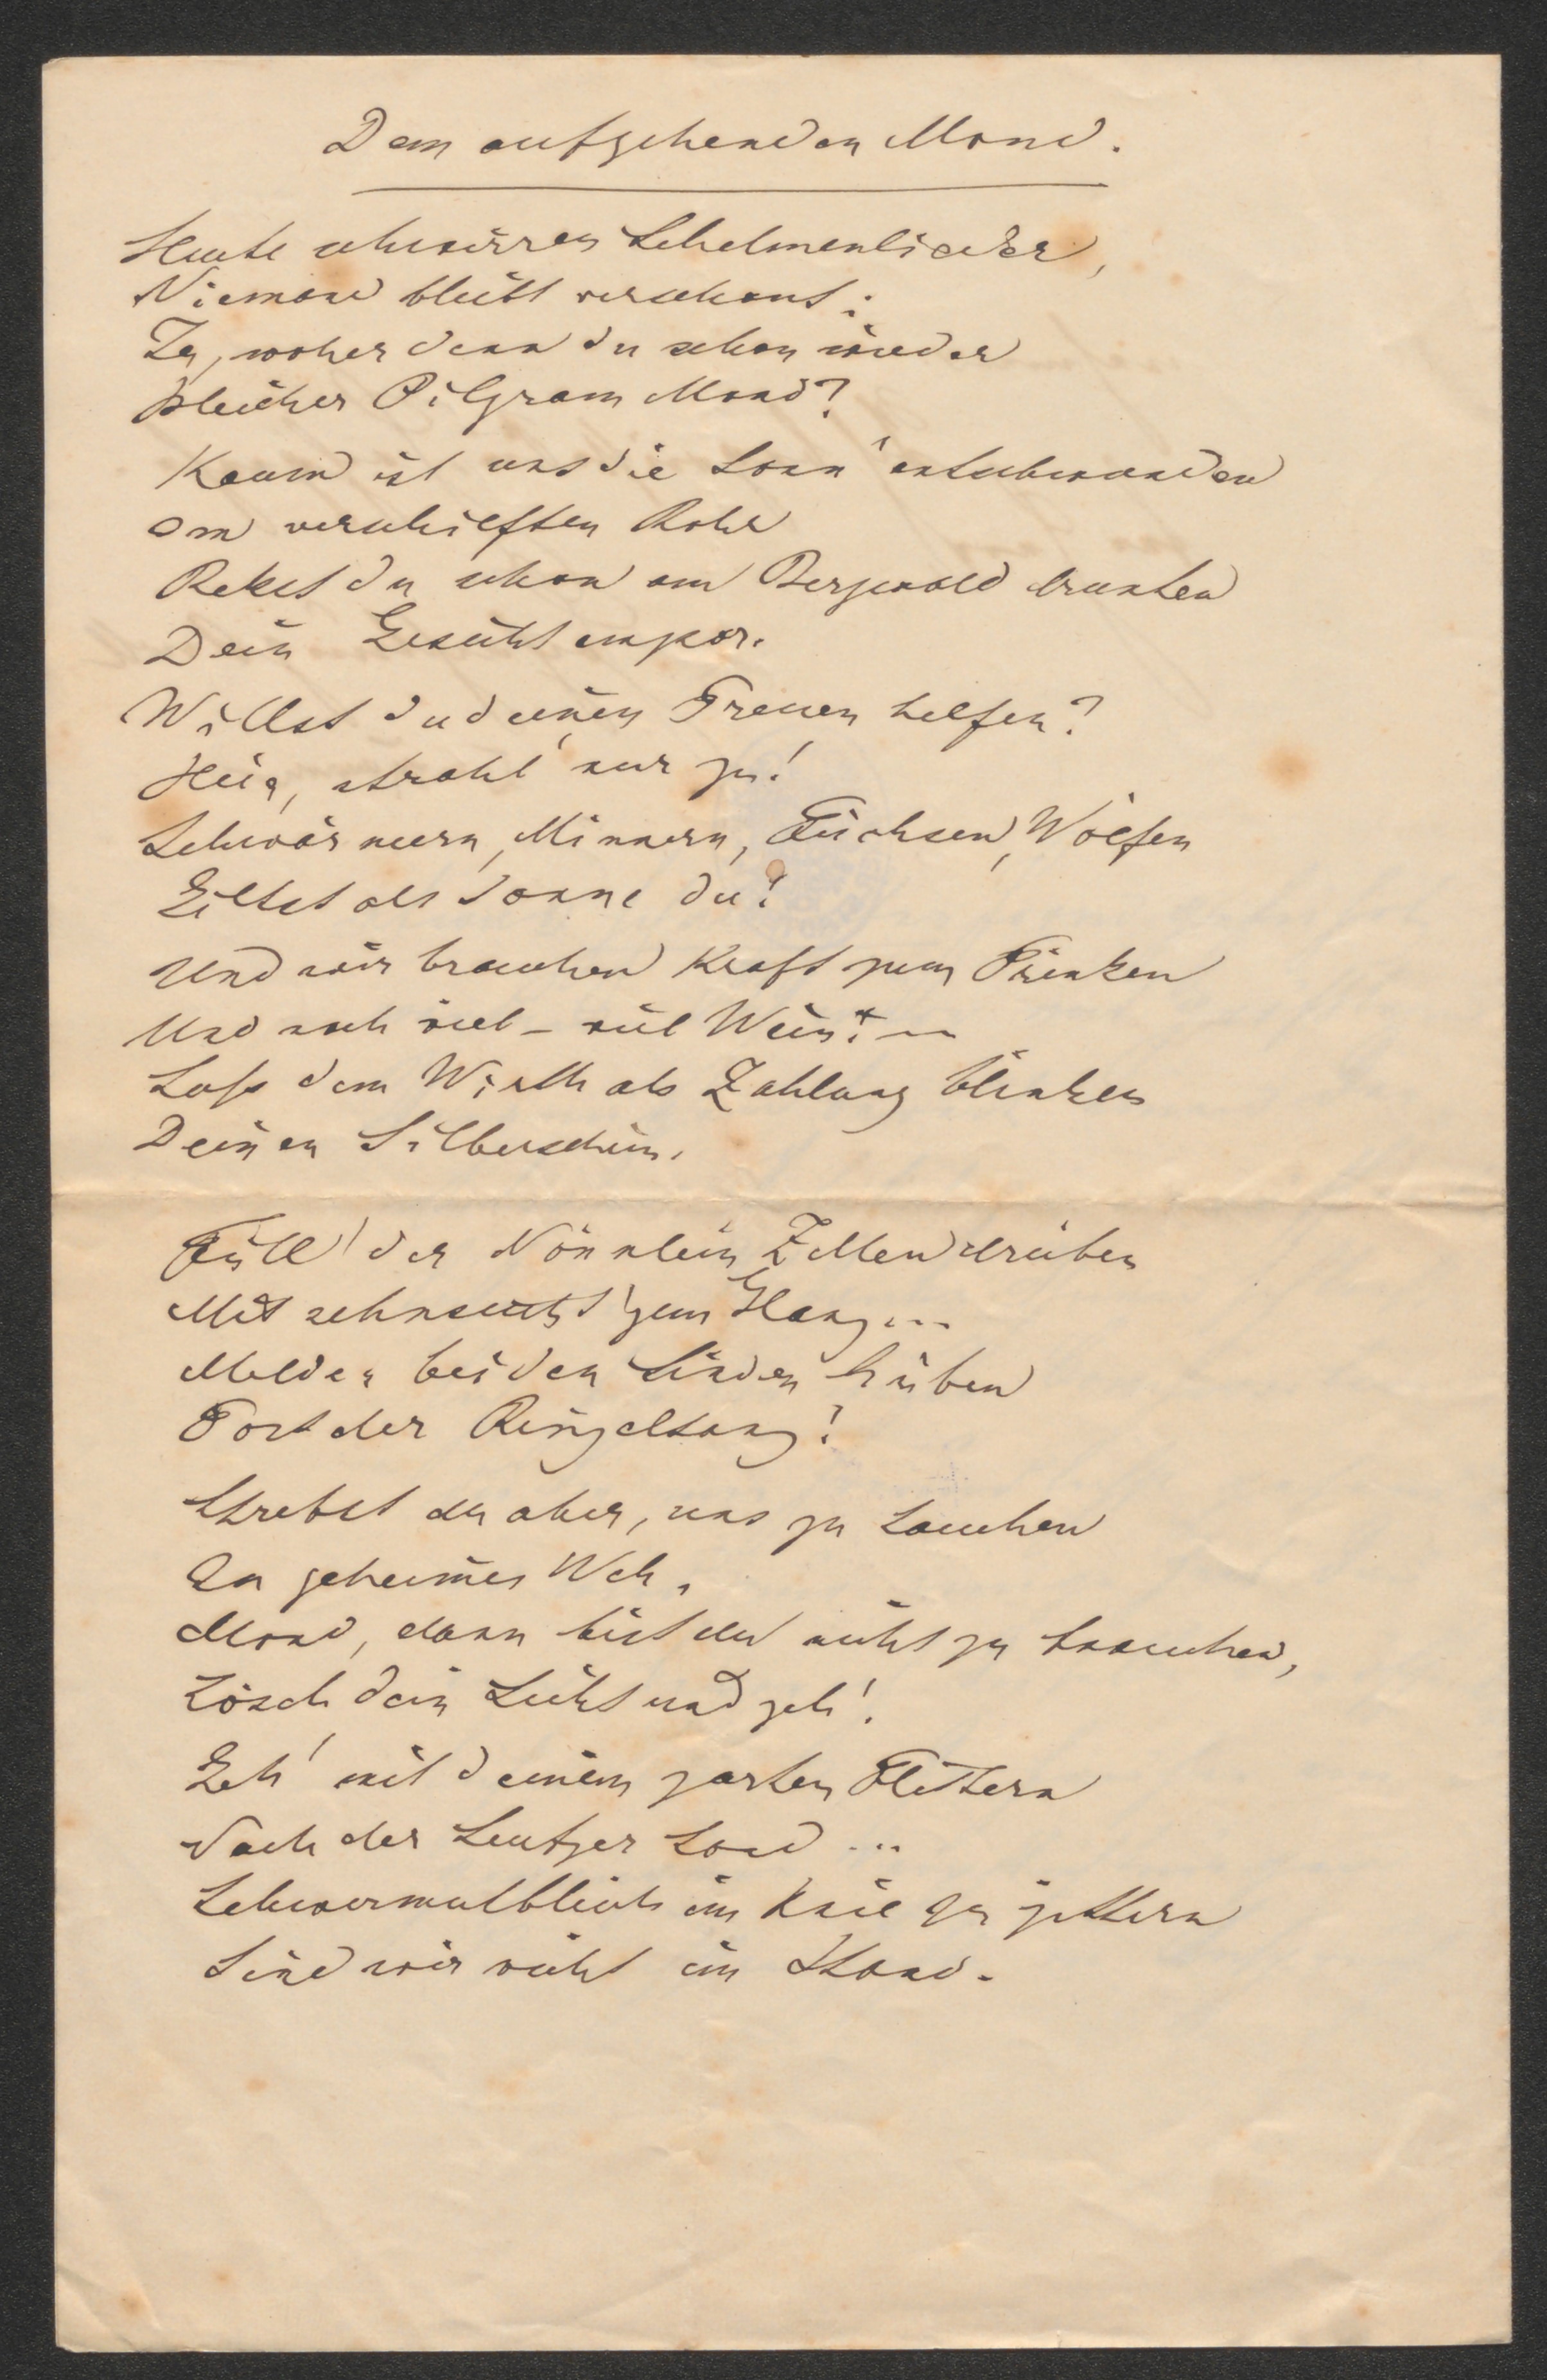 Dem aufgehenden Mond.
Heute schwirren Schelmenlieder,
Niemand bleibt verschont;
Ja, woher denn du schon wieder
Bleicher Pilgram Mond?
Kaum ist uns die Sonn' entschwunden
Am verschilften Rohr
Rekst du schon am Bergwald drunten
Dein Gesicht empor.
Willst du deinen Treuen helfen?
Heia, strahl' nur zu!
Schwärmern, Minnern, Füchsen, Wölfen
Giltst als Sonne du!
Und wir brauchen Kraft zum Trinken
Und noch viel – viel Wein! –
Lass dem Wirth als Zahlung blinken
Deinen Silberschein.
Füll' der Nönnlein Zellen drüben
Mit sehnsücht'gem Glanz...
Melde bei den Linden hüben
Fort der Ringeltanz!
Strebst du aber, uns zu tauchen
In geheimes Weh,
Mond, dann bist du nicht zu brauchen,
Lösch dein Licht und geh'!
Geh' mit deinem zarten Flittern
Nach der Seufzer Land ...
Schwermutbleich im Kaie zu zittern
Sind wir nicht im Stand.